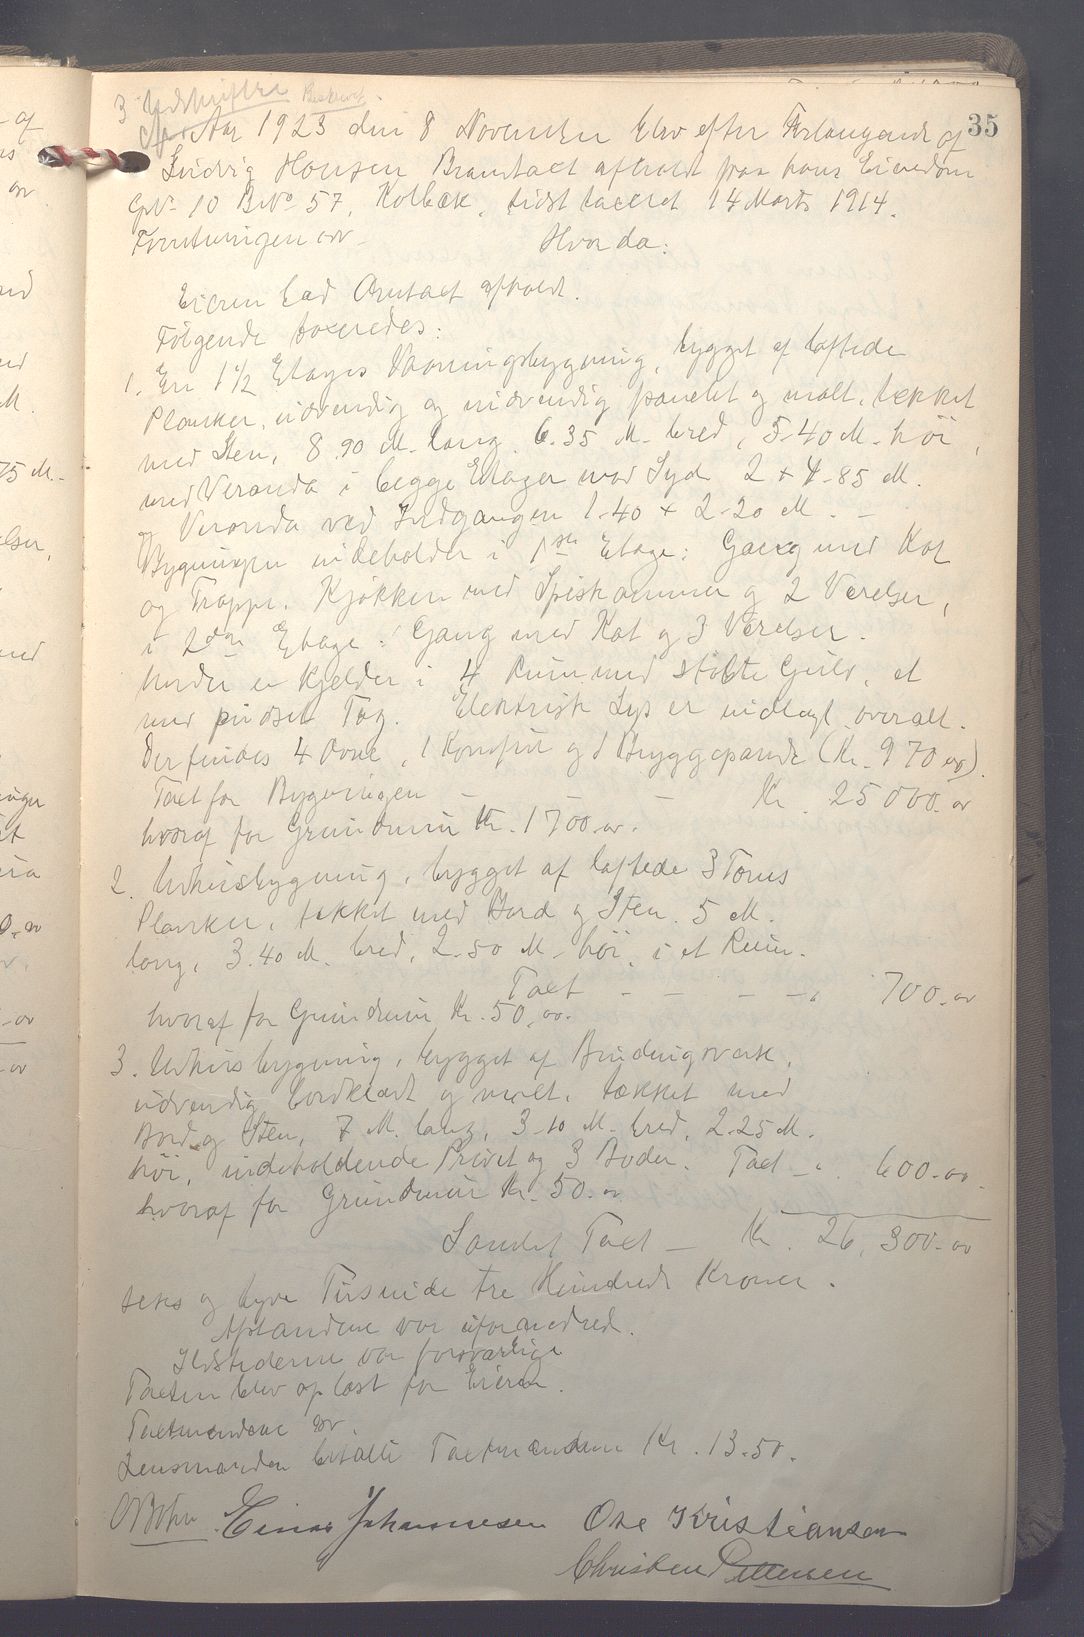 35
3 Udskrifter Beskrevet.
Aar 1923 den 8 November blev efter Forlangende af
Ludvig Hansen Brandtaxt afholdt paa hans Eiendom
GNo 10 BNo 57, Kolbæk, sidst taxeret 14 Marts 1914.
Forretningen ov. Hvorda:
Eieren bad Omtaxt afholdt.
Følgende taxeredes:
1. En 1 1/2 Etages Vaaningsbygning, bygget af laftede
Planker, udvendig og indvendig panelet og malt, tækket
med Sten, 8.90 M. lang, 6.35 M. bred, 5.40 M. høi,
med Veranda i begge Etager mod Syd 2 x 4.85 M.
og Veranda ved Indgangen 1.40 x 2.20 M. -
Bygningen indeholder i 1ste Etage: Gang med Kot
og Trappe. Kjøkken med Spiskammer og 2 Værelser,
i 2den Etage: Gang med Kot og 3 Værelser.
herunder Kjelder i 4 Rum med støbte Gulv, et
med pudset Tag. Elektrisk Lys er indlagt overalt.
Der findes 4 Ovne, 1 Komfur og 1 Bryggepande (Kr. 970 00).
Taxt for Bygningen - - - Kr. 25000.00
hvoraf for Grundmur Kr. 1700.00.
2. Udhusbygning, bygget af laftede 3 Toms
Planker, tækket med Bord og Sten. 5 M.
lang, 3.40 M. bred, 2.50 M. høi, i et Rum.
Taxt - - - - " 700.00
hvoraf for Grundmur Kr. 50.00.
3. Udhusbygning, bygget af Bindingsverk,
udvendig bordklædt og malt, tækket med
Bord og Sten, 7 M. lang, 3.10 M. bred, 2.25 M.
høi, indeholdende Privet og 3 Boder. Taxt - " 600.00.
hvoraf for Grundmur Kr. 50.00
Samlet Taxt - Kr. 26,300.00
seks og tyve Tusinde tre Hundrede Kroner.
Afstandene var uforandred.
Ildstederne var forsvarlige
Taxten blev oplæst for Eieren.
Taxtmændene ov.
Lensmanden betalte Taxtmændene Kr. 13.50.
Einar Johannesen Ole Kristiansen
Christen Pettersen